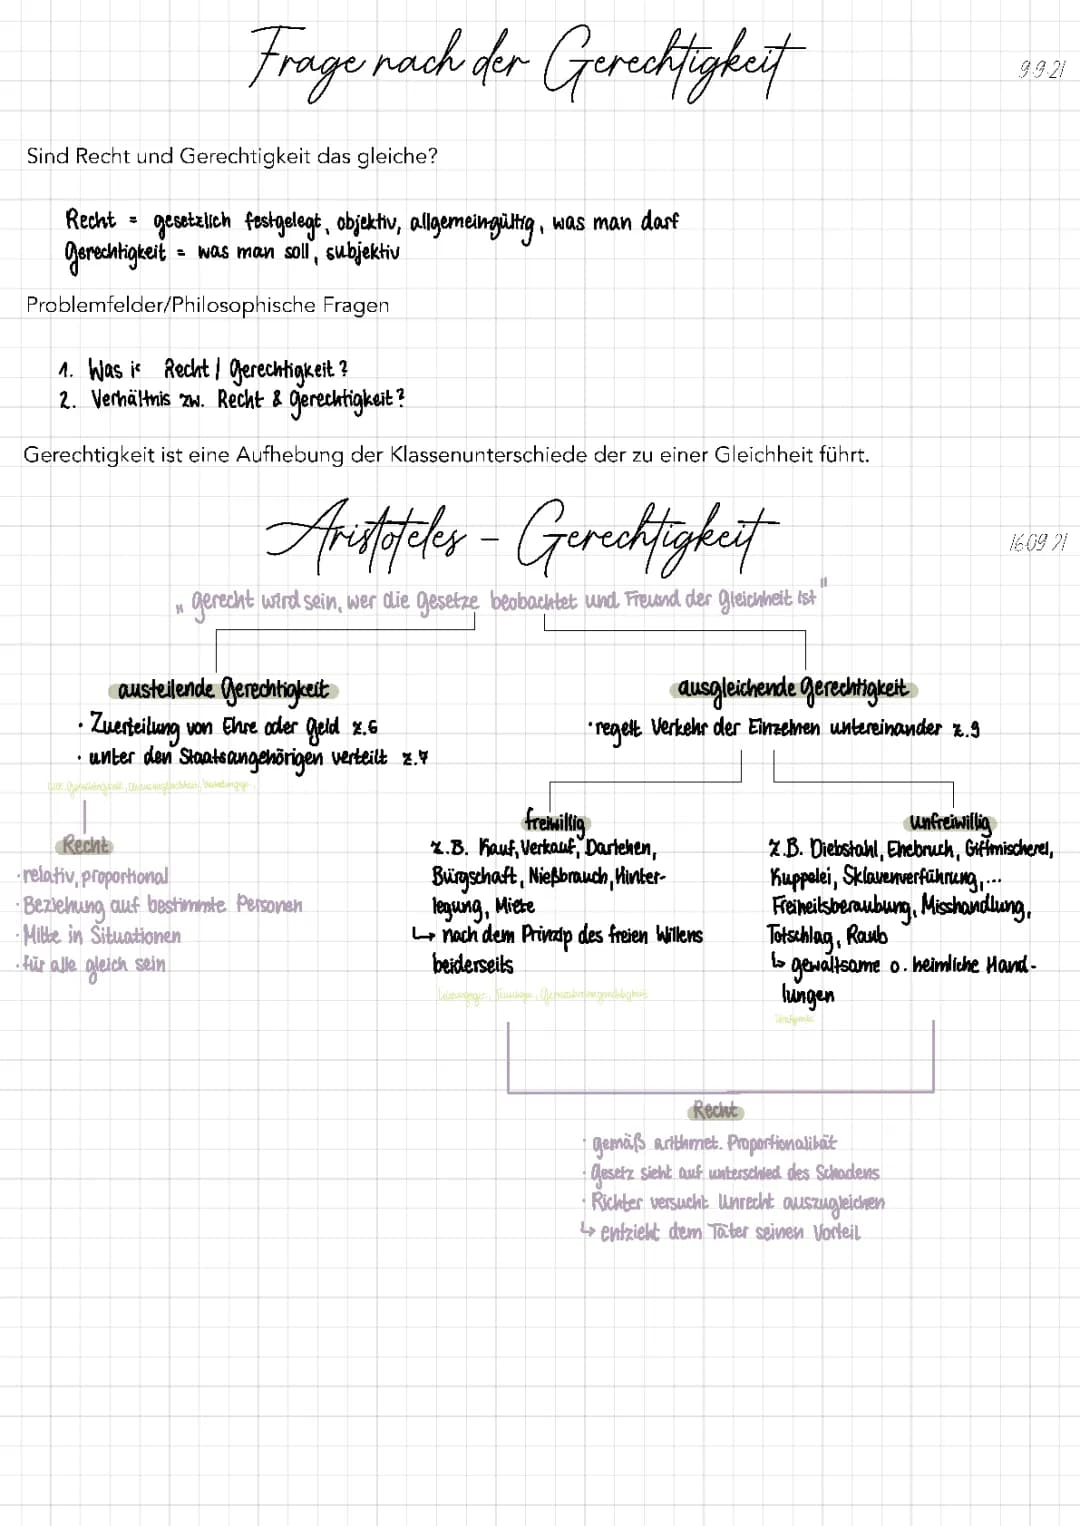 Frage nach der Gerechtigkeit
9.9.21
Sind Recht und Gerechtigkeit das gleiche?
Recht = gesetzlich festgelegt, objektiv, allgemeingültig, was man darf
Gerechtigkeit = was man soll, subjektiv
Problemfelder/Philosophische Fragen
1. Was is Recht / Gerechtigkeit?
2. Verhältnis zw. Recht & Gerechtigkeit?
Gerechtigkeit ist eine Aufhebung der Klassenunterschiede der zu einer Gleichheit führt.
Aristoteles - Gerechtigkeit
16.09.21
„Gerecht wird sein, wer die Gesetze beobachtet und Freund der Gleichheit ist"
austeilende Gerechtigkeit
· Zuerteilung von Ehre oder Geld z.6
· unter den Staatsangehörigen verteilt z.7
Recht
· relativ, proportional
· Beziehung auf bestimmte Personen
· Mitte in Situationen
· für alle gleich sein
ausgleichende Gerechtigkeit
· regelt Verkehr der Einzelnen untereinander z.9
freiwillig
z.B. Kauf, Verkauf, Darlehen,
Bürgschaft, Nießbrauch, Hinter-
legung, Miete
↳ nach dem Prinzip des freien Willens
beiderseits
unfreiwillig
z.B. Diebstahl, Ehebruch, Giftmischerei,
Kuppelei, Sklavenverführung,...
Freiheitsberaubung, Misshandlung,
Totschlag, Raub
↳ gewaltsame o. heimliche Hand-
lungen
Recht
· gemäß arithmet. Proportionalität
· Gesetz sieht auf unterschied des Schadens
· Richter versucht Unrecht auszugleichen
↳ entzieht dem Täter seinen Vorteil